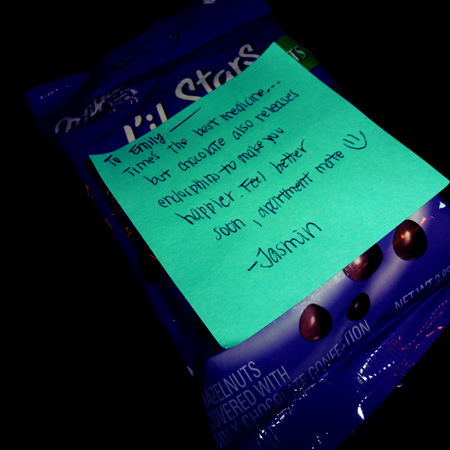 Milka
L'il Stars
TS
To Emily
Time's the best medicine...
but chocolate also releases
endorphins to make you
happier. Feel better
soon, apartment mate
-Jasmin
NET WT 3.8
HAZELNUTS
COVERED WITH
MILKY CHOCOLATE CONFECTION